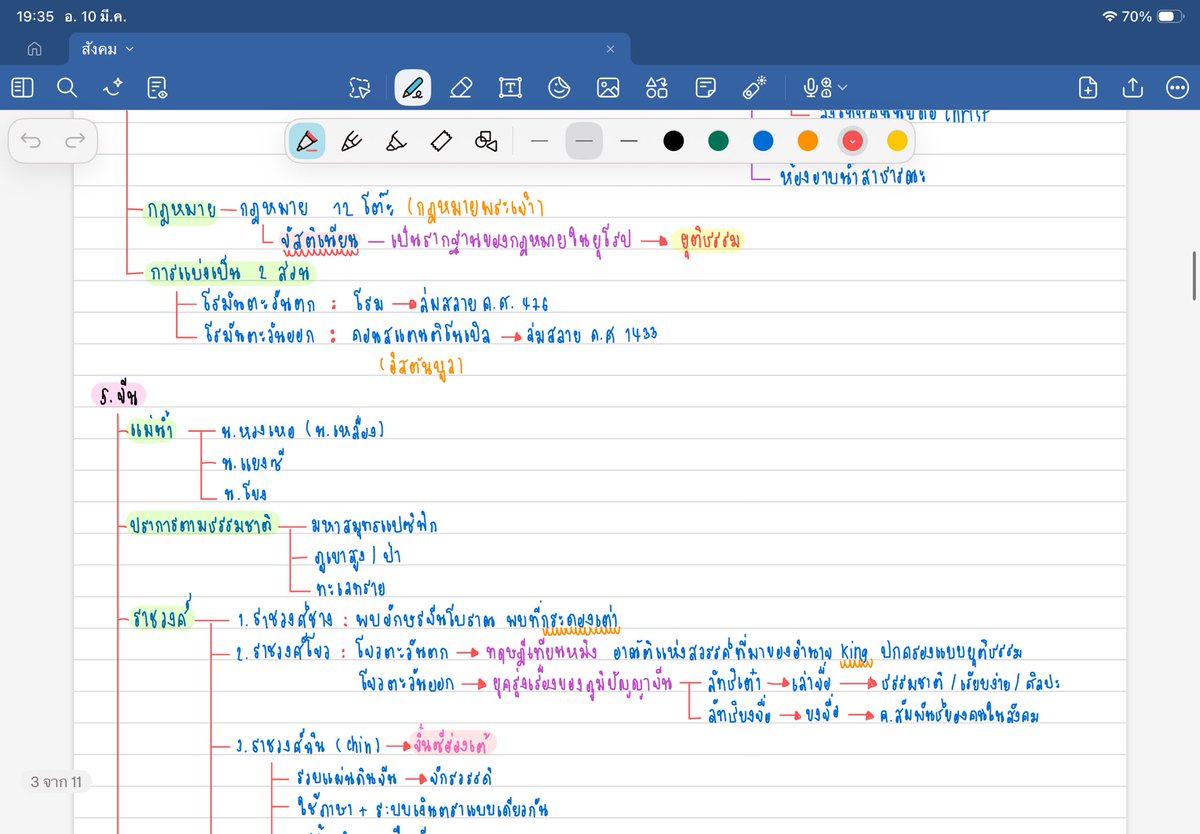 19:35 อ. 10 มี.ค.
70%
สังคม
Christ
ห้องอาบน้ำสาธารณะ
กฎหมาย — กฎหมาย 12 โต๊ะ (กฎหมายพระเจ้า)
จัสติเนียน — เป็นรากฐานของกฎหมายในยุโรป → ยุติธรรม
การแบ่งเป็น 2 ส่วน
โรมันตะวันตก : โรม → ล่มสลาย ค.ศ. 476
โรมันตะวันออก : คอนสแตนติโนเปิล → ล่มสลาย ค.ศ 1433
(อิสตันบูล)
5. จีน
แม่น้ำ — น.หวงเหอ (น.เหลือง)
น.แยงซี
น.โขง
ปราการตามธรรมชาติ — มหาสมุทรแปซิฟิก
ภูเขาสูง / ป่า
ทะเลทราย
ราชวงศ์ — 1. ราชวงศ์ชาง : พบอักษรจีนโบราณ พบที่กระดองเต่า
2. ราชวงศ์โจว : โจวตะวันตก → ทฤษฎีเทียนหมิง อาณัติแห่งสวรรค์ที่มาของอำนาจ King ปกครองแบบยุติธรรม
โจวตะวันออก → ยุครุ่งเรืองของภูมิปัญญาจีน — ลัทธิเต๋า → เล่าจื๊อ → ธรรมชาติ / เรียบง่าย / ศิลปะ
ลัทธิขงจื๊อ → ขงจื๊อ → ค.สัมพันธ์ของคนในสังคม
3. ราชวงศ์ฉิน (chin) → จิ๋นซีฮ่องเต้
รวมแผ่นดินจีน → จักรวรรดิ
ใช้ภาษา + ระบบเงินตราแบบเดียวกัน
3 จาก 11